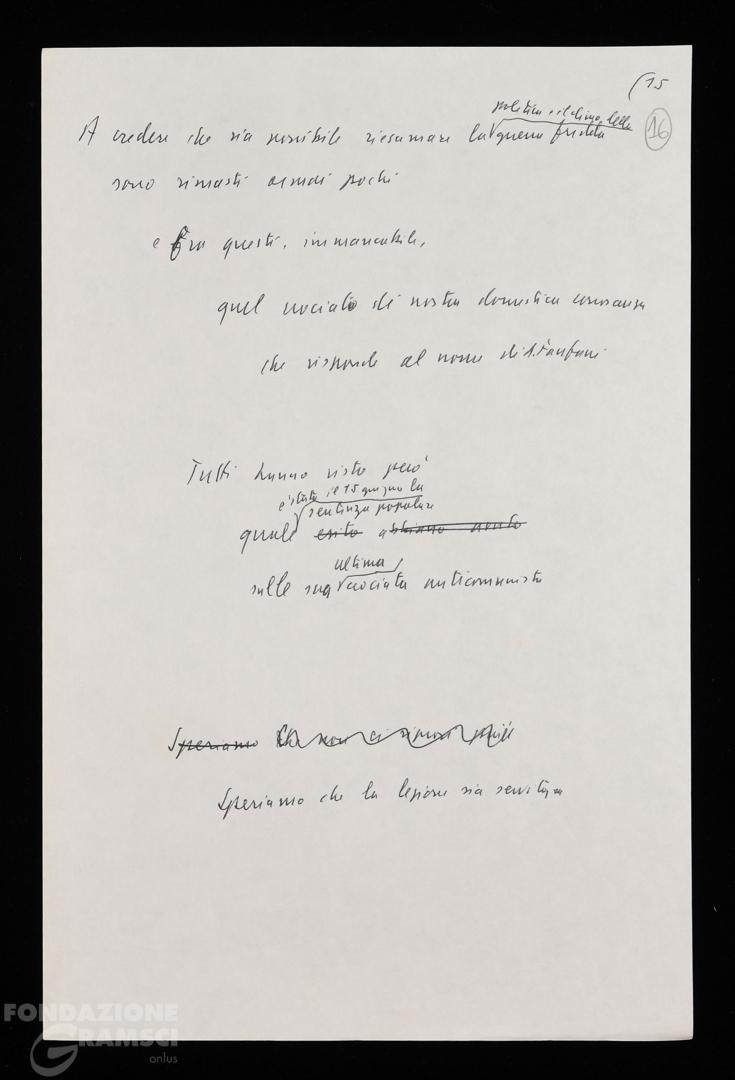 (15
16
politica e il clima della
A credere che sia possibile riesumare la guerra fredda
sono rimasti ormai pochi
e fra questi, immancabile,
quel crociato di nostra domestica conoscenza
che risponde al nome di A. Fanfani
Tutti hanno visto però
è stata il 15 giugno la
sentenza popolare
quale esito abbiano avuto
ultima
sulla sua crociata anticomunista
Speriamo che non ci riprovi
Speriamo che la lezione sia servita
FONDAZIONE
GRAMSCI
onlus